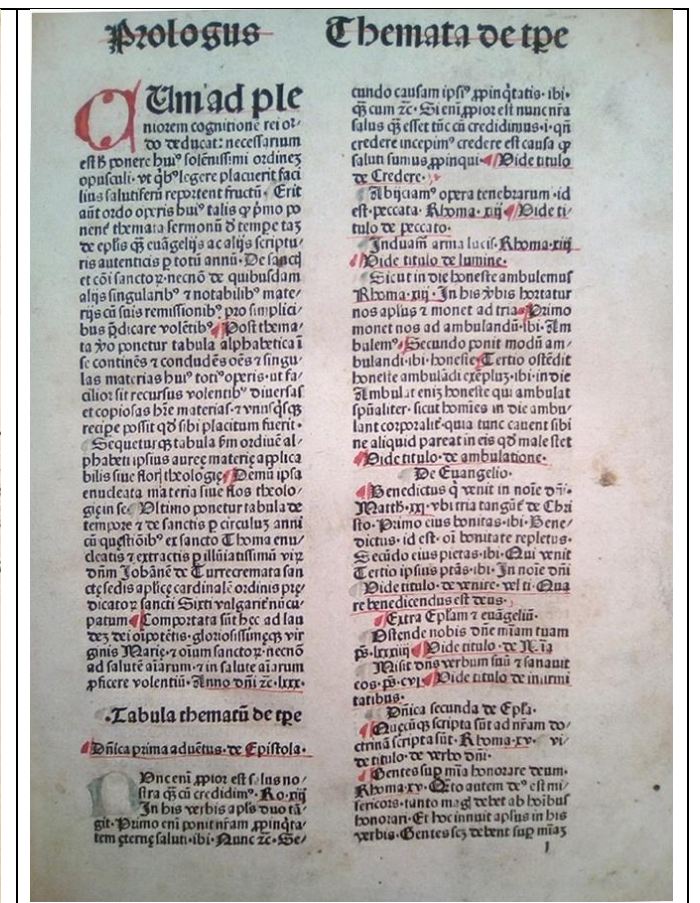 Prologus
Themata de tpe
CUm ad ple
niorem cognitionē rei or⸗
do deducat: necessarium
est ħ ponere huiꝰ solēnissimi ordinez
opusculi· vt qͥbꝰ legere placuerit faci
lius salutiferū reportent fructū· Erit
aūt ordo operis huiꝰ talis ꝙ pͥmo po
nenť themata sermonū ď tempe taʒ
de eplis qʒ euāgelijs ac alijs scriptu⸗
ris autenticis ꝑ totū annū· De sanctꝭ
et cōi sanctoꝝ· necnō de quibusdam
alijs singularibꝰ ⁊ notabilibꝰ mate⸗
rijs cū suis remissionibꝰ pro simplici⸗
bus p̄dicare volētibꝰ· Post thema⸗
ta ꝟo ponetur tabula alphabetica ī
se continēs ⁊ concludēs oēs ⁊ singu⸗
las materias huiꝰ totiꝰ operis· ut fa⸗
cilior sit recursus volentibꝰ diuersas
et copiosas hr̄e materias· ⁊ vnusqͥsqʒ
recipe possit qḋ sibi placitum fuerit·
Sequetur qʒ tabula ẜm ordinē al⸗
phabeti ipsius auree materię applica
bilis siue flori theologię· Demū ipsa
enucleata materia siue flos theolo⸗
gię in se· Ultimo ponetur tabula de
tempore ⁊ de sanctis ꝑ circulū anni
cū questiōibꝰ ex sancto Thoma enu⸗
cleatis ⁊ extractis ꝑ illūiatissimū virꝝ
dn̄m Johānē de Turrecremata san
ctę sedis aplicę cardinalē ordinis prę
dicatoꝝ sancti Sixti vulgarit̄ nūcu⸗
patum· Comportata sūt hęc ad lau
deʒ dei oīpotētis· gloriosissimęqʒ vir
ginis Marię· ⁊ oīum sanctoꝝ· necnō
ad salutē aīarum· ⁊ in salute aīarum
ꝓficere volentiū· Anno dn̄i ⁊c· lxxx·
Tabula thematū de tpe
Dn̄ica prima aduētus· de Epistola·
Unc eni ꝓpior est salus no⸗
stra qʒ cū credidimꝰ· Ro·xiij
In his verbis apls duo tā⸗
git· Primo eni ponit nr̄am ꝓpinqͥta⸗
tem ęternę saluti· ibi· Nunc ⁊c· Se⸗
cundo causam ipsiꝰ ꝓpinqͥtatis· ibi·
qʒ cum ⁊c· Si eni ꝓpior est nunc nr̄a
salus qʒ esset tūc cū credidimus· i· qn̄
credere incepimꝰ credere est causa ꝙ
saluti sumus ꝓpinqui· Vide titulo
de Credere·
Abijciamꝰ opera tenebrarum· id
est· peccata· Rhoma·xiij· Vide ti⸗
tulo de peccato·
Induam̄ arma lucis· Rhoma·xiij
Vide titulo de lumine·
Sicut in die honeste ambulemus
Rhoma·xiij· In his ꝟbis hortatur
nos aplus ⁊ monet ad tria· Primo
monet nos ad ambulandū· ibi· Am
bulemꝰ· Secundo ponit modū am⸗
bulandi· ibi· honeste· Tertio ostēdit
honeste ambulādi exēpluʒ· ibi· in die
Ambulat eniʒ honeste qui ambulat
spūaliter· sicut homīes in die ambu⸗
lant corporalit̄· quia tunc cauent sibi
ne aliquid pareat in eis qḋ male stet
Vide titulo· de ambulatione·
De Euangelio·
Benedictus q̄ venit in noīe dn̄i·
Matth·xxj· vbi tria tangūť de Chri
sto· Primo eius bonitas· ibi· Bene⸗
dictus· id est· oī bonitate repletus·
Secūdo eius pietas· ibi· Qui venit
Tertio ipsius ptās· ibi· In noīe dn̄i
Vide titulo· de venire· vel ti· Qua
re benedicendus est deus·
Extra Eplam ⁊ euāgeliū·
Ostende nobis dn̄e mīam tuam
ps·lxxxiiij· Vide titulo· de M̄ia
Misit dn̄s verbum suū ⁊ sanauit
eos· ps·cvj· Vide titulo de infirmi
tatibus·
Dn̄ica secunda de Epla·
Quecūqʒ scripta sūt ad nr̄am do⸗
ctrinā scripta sūt· Rhoma·xv· vi⸗
de titulo· de verbo dn̄i·
Gentes suꝑ mīa honorare deum·
Rhoma·xv· Qͣto autem deꝰ est mi⸗
sericors· tanto magꝭ debet ab hoībus
honorari· Et hoc innuit aplus in his
verbis· Gentes scʒ debent suꝑ mīaʒ
j